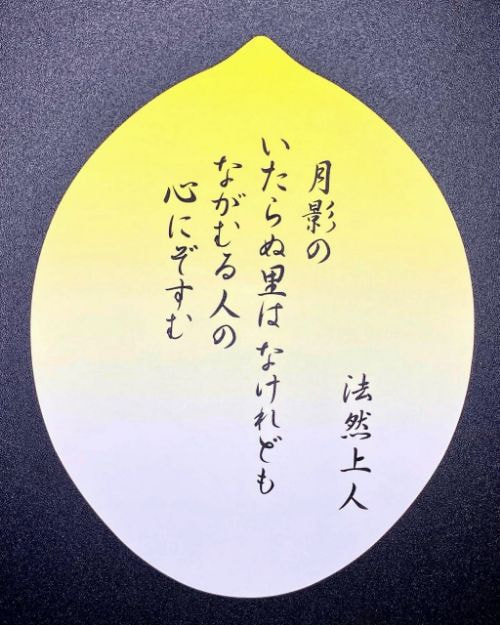 法然上人
月影の
いたらぬ里は なけれども
ながむる人の
心にぞすむ